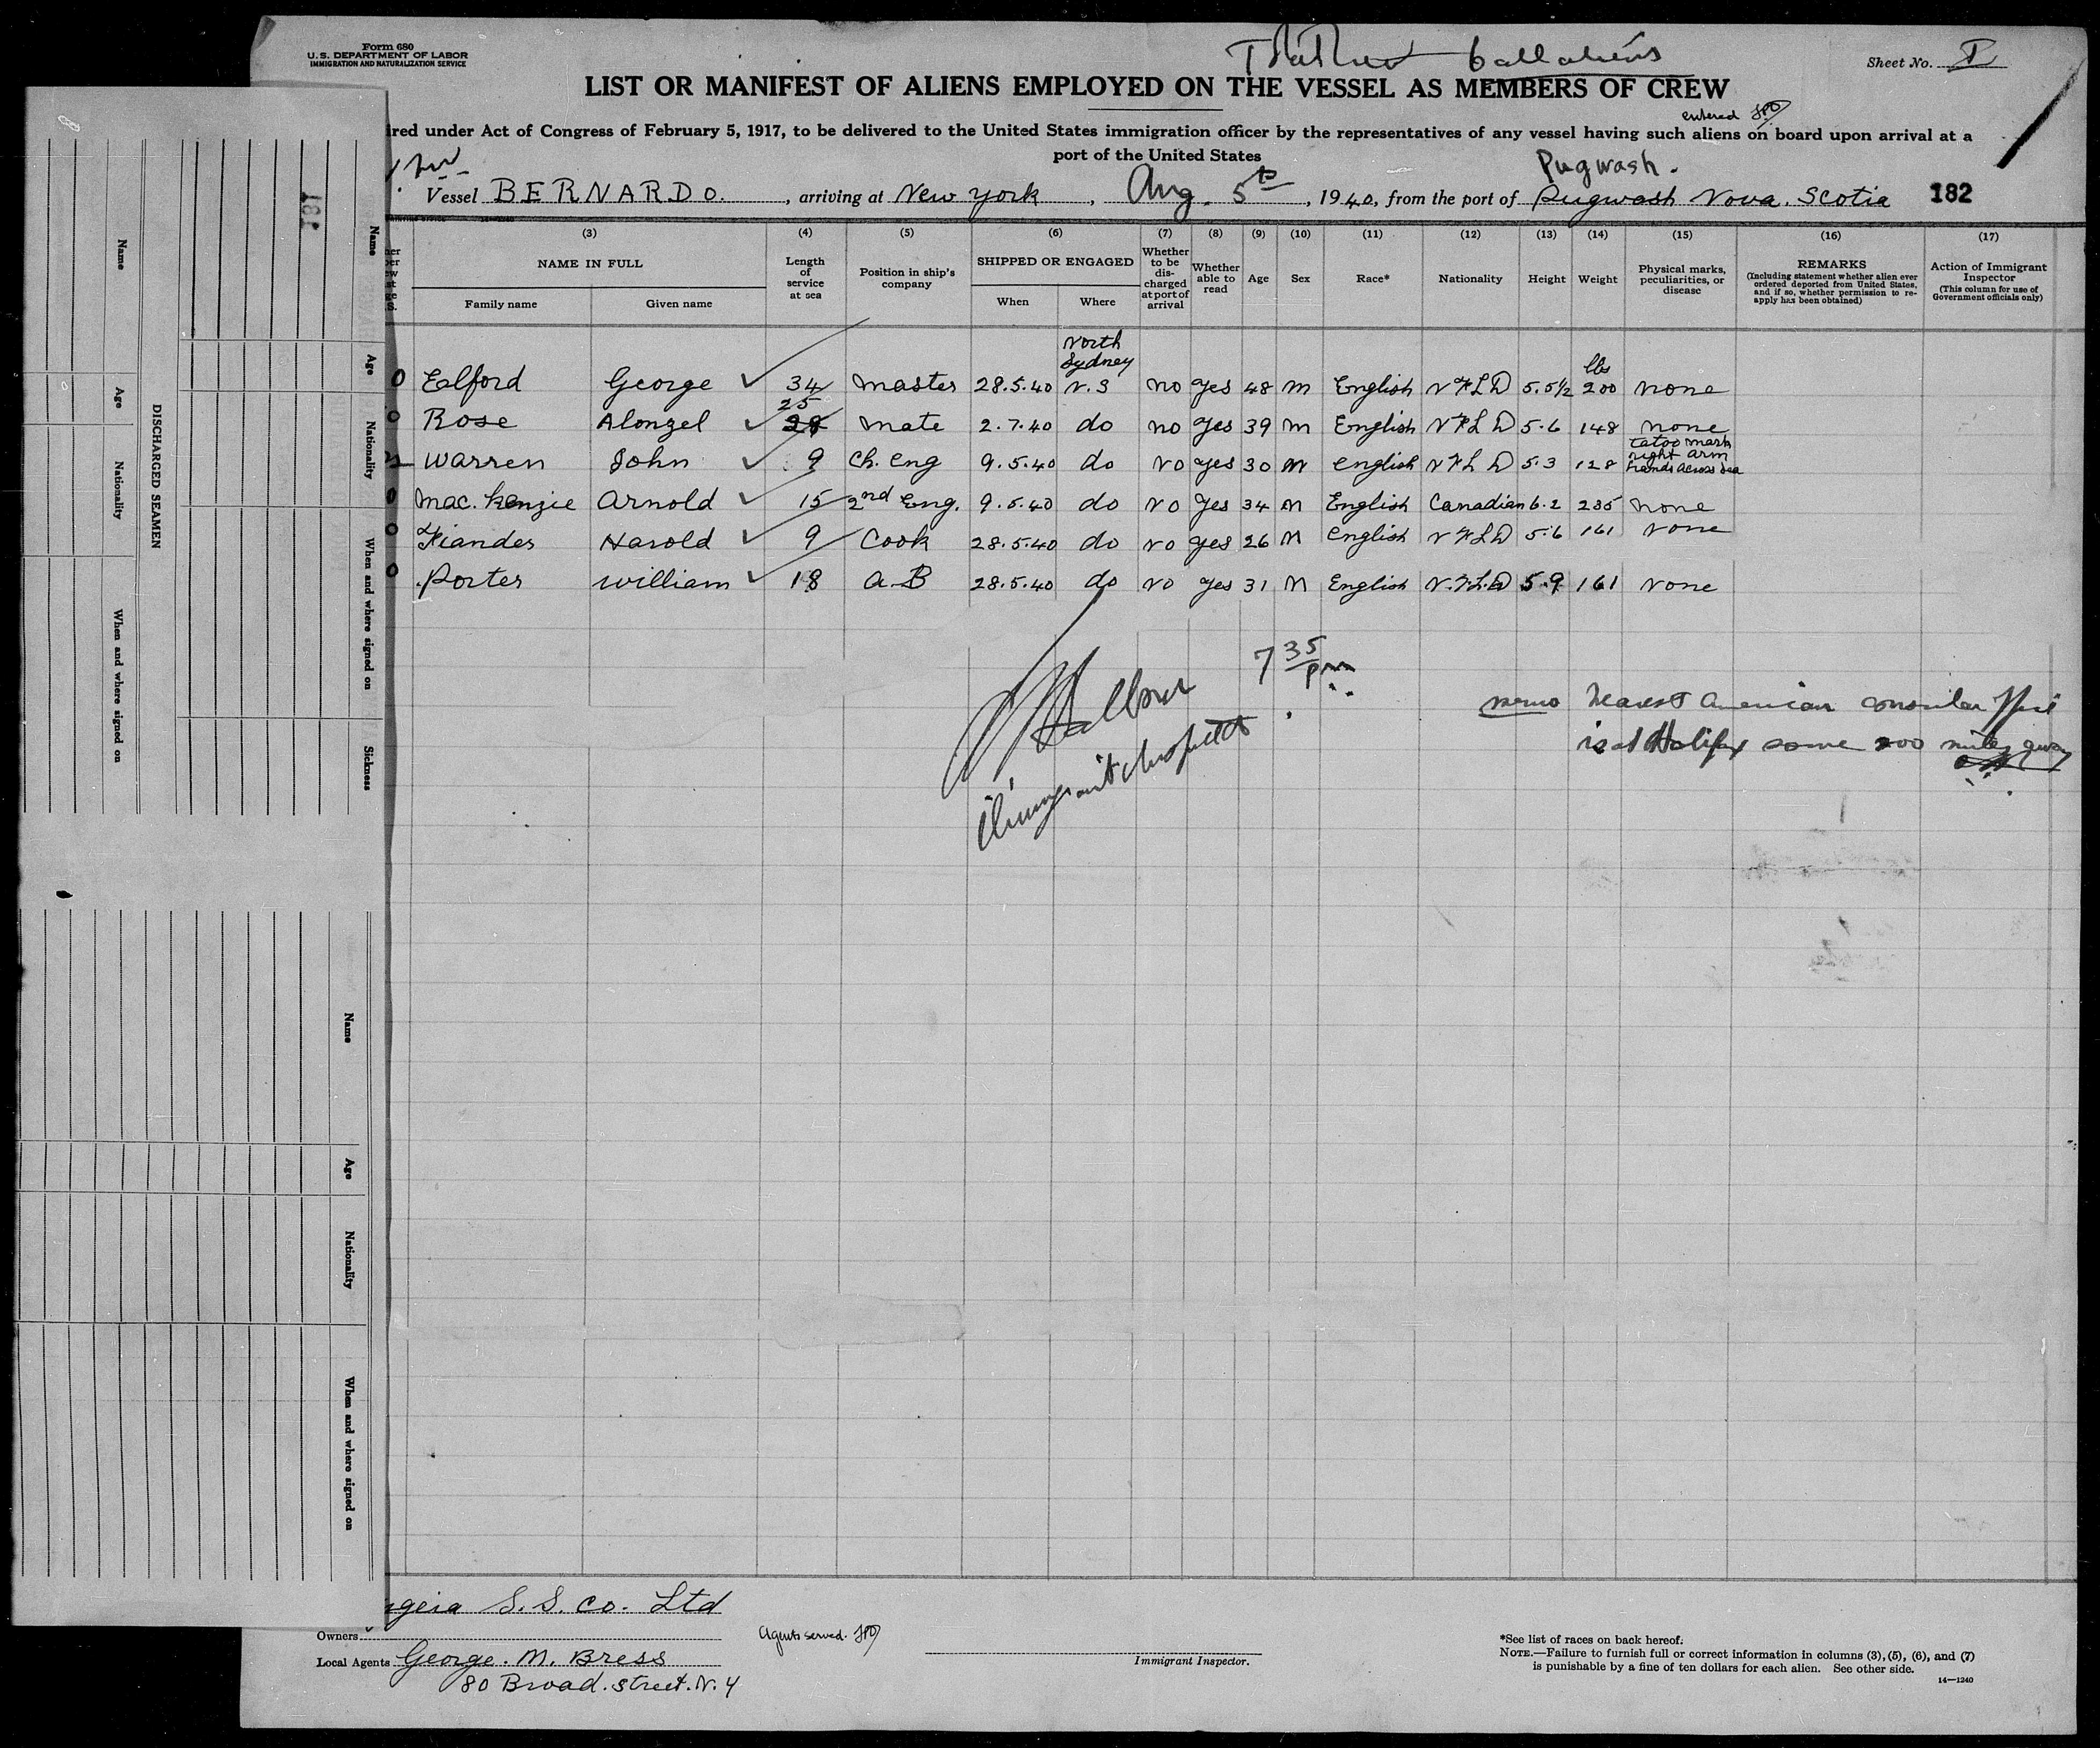 Form 680
U. S. DEPARTMENT OF LABOR
IMMIGRATION AND NATURALIZATION SERVICE
Sheet No. I
LIST OR MANIFEST OF ALIENS EMPLOYED ON THE VESSEL AS MEMBERS OF CREW
entered
ired under Act of Congress of February 5, 1917, to be delivered to the United States immigration officer by the representatives of any vessel having such aliens on board upon arrival at a
port of the United States
Pugwash.
Vessel BERNARDO., arriving at New York, Aug. 5th, 1940, from the port of Pugwash Nova. Scotia 182
(3) (4) (5) (6) (7) (8) (9) (10) (11) (12) (13) (14) (15) (16) (17)
NAME IN FULL
Family name
Given name
Length of service at sea
Position in ship's company
SHIPPED OR ENGAGED
When
Where
Whether to be discharged at port of arrival
Whether able to read
Age
Sex
Race*
Nationality
Height
Weight
Physical marks, peculiarities, or disease
REMARKS
(Including statement whether alien ever ordered deported from United States, and if so, whether permission to re-apply has been obtained)
Action of Immigrant Inspector
(This column for use of Government officials only)
North
Sydney
lbs
0 Ealford George ✓ 34 Master 28.5.40 N.S no yes 48 m English NFLD 5.5½ 200 none
25
0 Rose Alonzel ✓ 28 Mate 2.7.40 do no yes 39 m English NFLD 5.6 148 none
tatoo mark
right arm
Warren John ✓ 9 Ch. Eng 9.5.40 do no yes 30 m English NFLD 5.3 128 hands across sea
0 Mac. Kenzie Arnold ✓ 15 2nd Eng. 9.5.40 do no yes 34 m English Canadian 6.2 235 none
0 Fiander Harold ✓ 9 Cook 28.5.40 do no yes 26 m English NFLD 5.6 161 none
0 Porter William ✓ 18 A.B 28.5.40 do no yes 31 m English N.F.L.D 5.9 161 none
7 35 pm
memo Nearest American consular office
is at Halifax some 200 miles away
Immigrant Inspector
181
DISCHARGED SEAMEN
Name
Age
Nationality
When and where signed on
Name
Age
Nationality
When and where signed on
Sickness
Name
Age
Nationality
When and where signed on
S.S. Co. Ltd
Owners
Local Agents George. M. Bress
80 Broad. Street. N. Y
Agents served.
Immigrant Inspector.
*See list of races on back hereof.
NOTE.—Failure to furnish full or correct information in columns (3), (5), (6), and (7)
is punishable by a fine of ten dollars for each alien. See other side.
14—1240